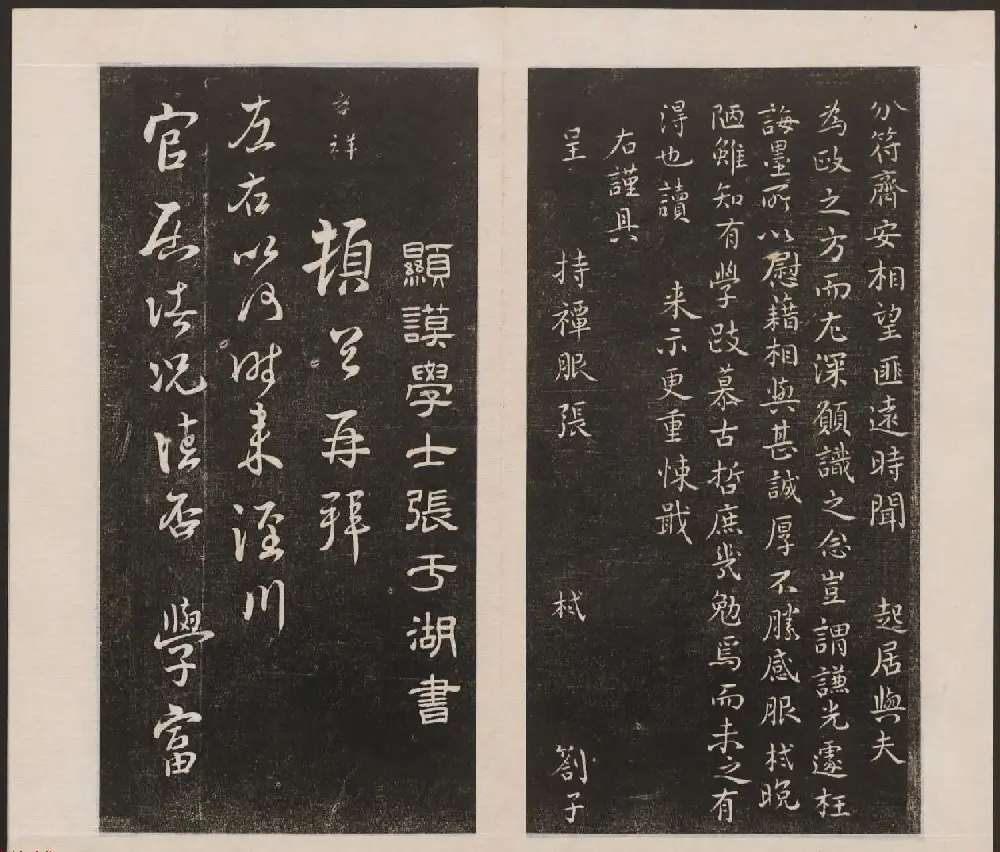 分符齊安相望匪遠時聞 起居與夫
為政之方而尤深願識之忿豈謂謙光遽枉
誨墨所以慰藉相與甚誠厚不勝感服栻晚
陋雖知有學跂慕古哲庶幾勉焉而未之有
得也讀 来示更重悚戢
右謹具
呈 持禫服張 栻 劄子
顯謨學士張于湖書
孝祥 頓首再拜
左右以何時来涇川
官居情况佳否 學富